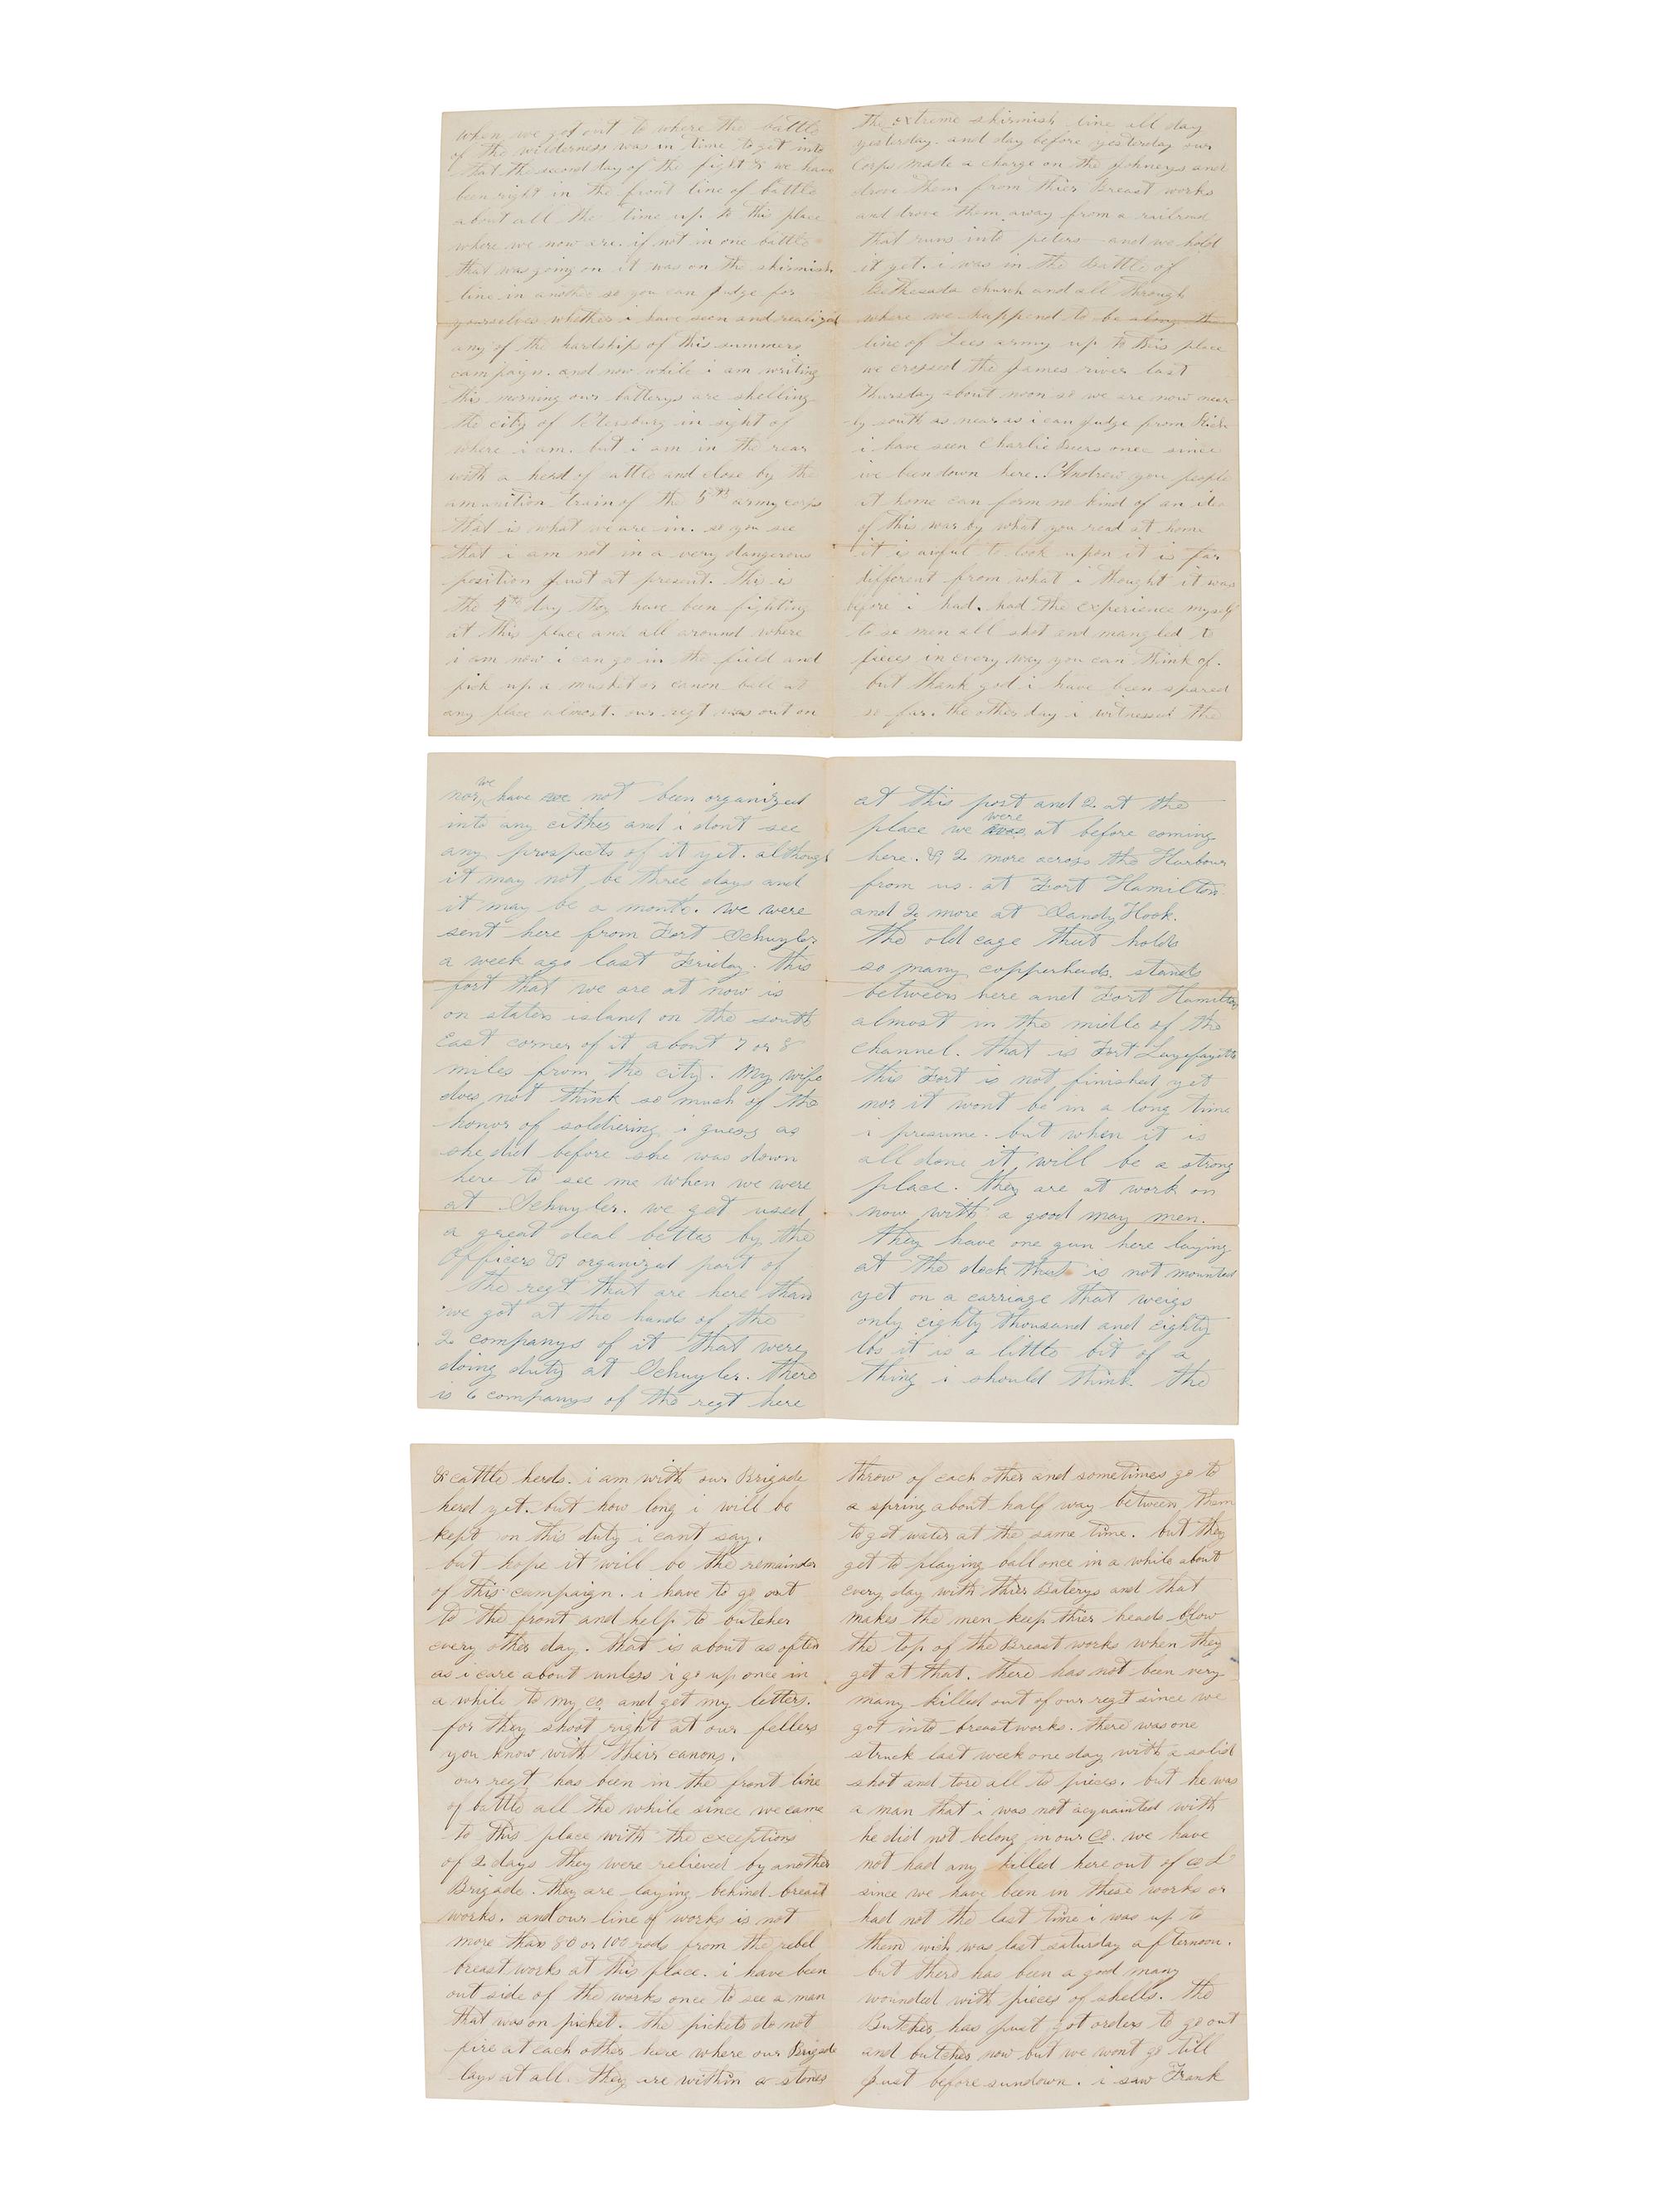 when we got out to where the battle
of the wilderness was in time to get into
that the second day of the fight & we have
been right in the front line of battle
about all the time up to this place
where we now are. if not in one battle
that was going on it was on the skirmish
line in another so you can judge for
yourselves whether i have seen and realized
any of the hardship of this summers
campaign. and now while i am writing
this morning our batterys are shelling
the city of Petersburg in sight of
where i am. but i am in the rear
with a herd of attle and close by the
amunition train of the 5th army corps
that is what we are in. so you see
that i am not in a very dangerous
position just at present. this is
the 4th day they have been fighting
at this place and all around where
i am now i can go in the field and
pick up a musket or canon ball at
any place almost. our regt was out on
the extreme skirmish line all day
yesterday. and day before yesterday our
Corps made a charge on the Johneys and
drove them from thier breast works
and drove them away from a railroad
that runs into peters and we hold
it yet. i was in the battle of
Bethesada church and all through
where we happend to be along the
line of Lees army up to this place
we crossed the James river last
thursday about noon so we are now near
ly south as near as i can judge from Rich
i have seen Charlie once since
ive been down here. Andrew you people
at home can form no kind of an idea
of this war by what you read at home
it is awful to look upon it is far
different from what i thought it was
before i had. had the experience myself
to se men all shot and mangled to
pieces in every way you can think of.
but thank god i have been spared
so far. the other day i witnessed the
nor we have not been organized
into any either and i dont see
any prospects of it yet. although
it may not be three days and
it may be a month. we were
sent here from Fort Schuyler
a week ago last Friday. this
fort that we are at now is
on staten island on the south
East corner of it about 7 or 8
miles from the city. My wife
does not think so much of the
honor of soldiering i guess as
she did before she was down
here to see me when we were
at Schuyler. we get used
a great deal better by the
Officers & organized part of
the regt that are here than
we got at the hands of the
2 companys of it that were
doing duty at Schuyler. there
is 6 companys of the regt here
at this post and 2 at the
place we were at before coming
here. & 2 more across the Harbour
from us. at Fort Hamilton
and 2 more at Sandy Hook.
the old cage that holds
so many copperheads. stands
between here and Fort Hamilton
almost in the midle of the
channel. that is Fort Layefayette
this Fort is not finished yet
nor it wont be in a long time
i presume. but when it is
all done it will be a strong
place. they are at work on
now with a good may men.
they have one gun here laying
at the dock that is not mounted
yet on a carriage that weigs
only eighty thousand and eighty
lbs it is a little bit of a
thing i should think. the
& cattle herds. i am with our Brigade
herd yet. but how long i will be
kept on this duty i cant say.
but hope it will be the remainder
of this campaign. i have to go out
to the front and help to butcher
every other day. that is about as often
as i care about unless i go up once in
a while to my co and get my letters.
for they shoot right at our fellers
you know with their canons.
our regt has been in the front line
of battle all the while since we came
to this place with the exceptions
of 2 days they were relieved by another
Brigade. they are laying behind breast
works. and our line of works is not
more than 80 or 100 rods from the rebel
breast works at this place. i have been
out side of the works once to see a man
that was on picket. the pickets do not
fire at each other here where our Brigade
lays at all. they are within a stones
throw of each other and sometimes go to
a spring about half way between them
to get water at the same time. but they
get to playing ball once in a while about
every day with thier Baterys and that
makes the men keep thier heads blow
the top of the Breast works when they
get at that. there has not been very
many killed out of our regt since we
got into breast works. there was one
struck last week one day with a solid
shot and tore all to pieces. but he was
a man that i was not acquainted with
he did not belong in our Co. we have
not had any killed here out of co L
since we have been in these works or
had not the last time i was up to
them wich was last saturday afternoon.
but there has been a good many
wounded with pieces of shells. the
Butcher has just got orders to go out
and butcher now but we wont go till
just before sundown. i saw Frank